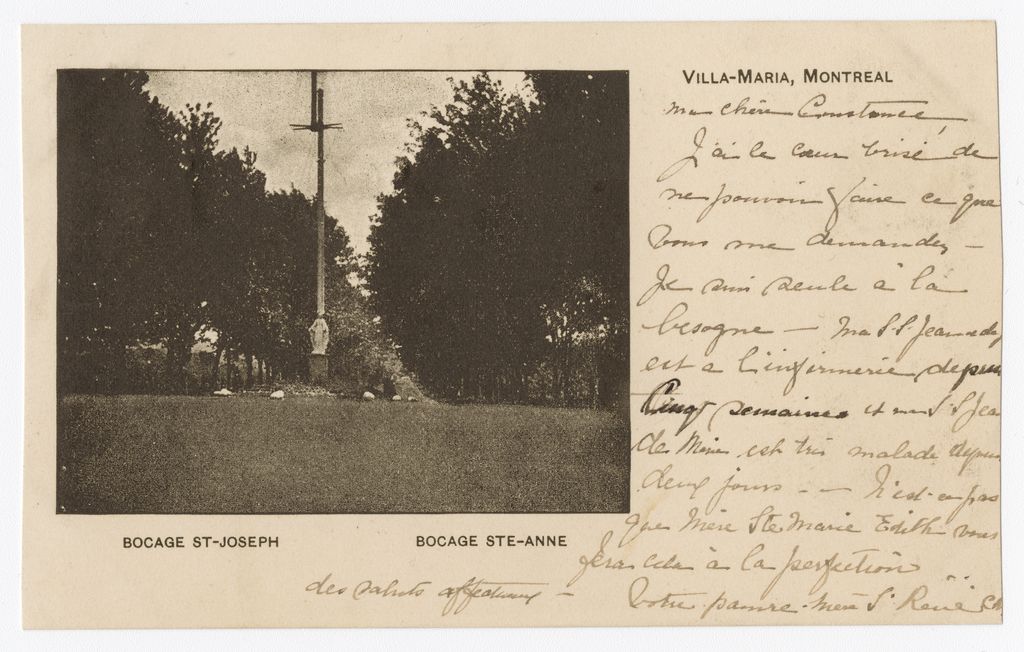 VILLA-MARIA, MONTREAL
ma chère Constance,
J'ai le cœur brisé de
ne pouvoir faire ce que
vous me demandez –
Je suis seule à la
besogne – ma S. S. Jean de
est à l'infirmerie depuis
Cinq semaines et ma S. S. Jea
de est très malade depuis
deux jours – – N'est-ce pas
que Mère Ste Marie Edith vous
fera cela à la perfection
Votre pauvre mère S. René
des saluts affectueux –
BOCAGE ST-JOSEPH
BOCAGE STE-ANNE